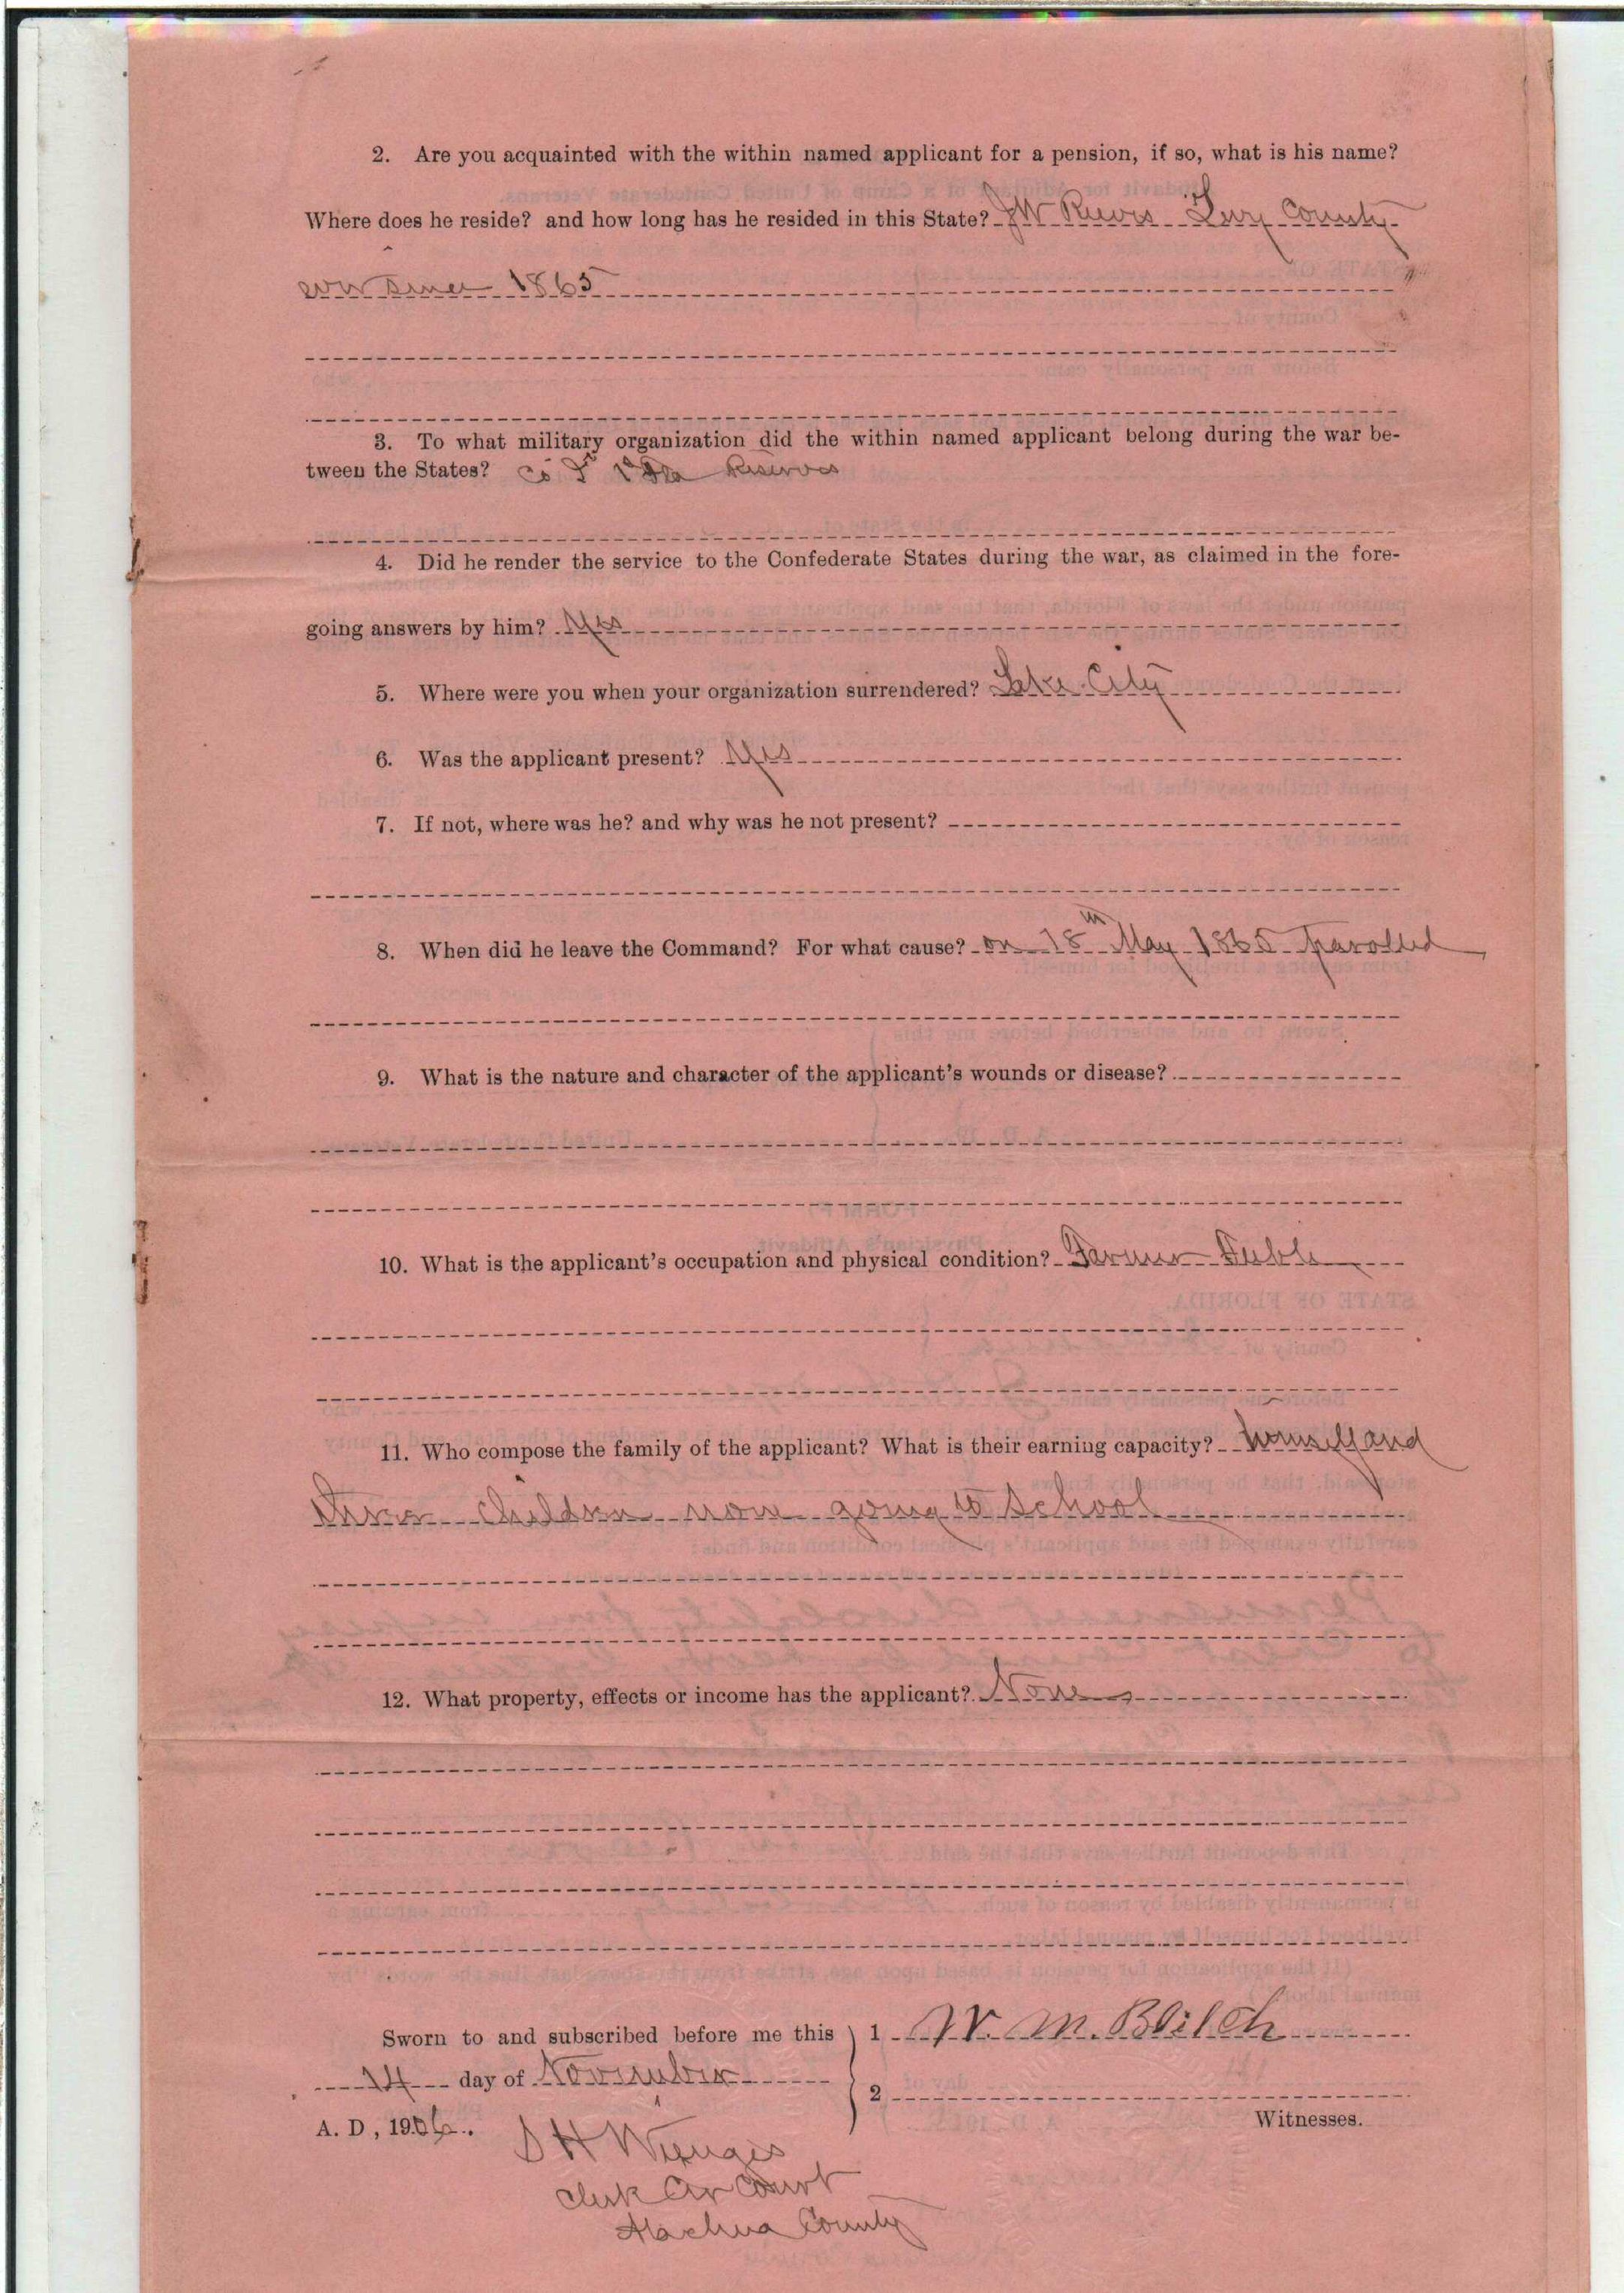 2. Are you acquainted with the within named applicant for a pension, if so, what is his name?
Where does he reside? and how long has he resided in this State? J W Reeves Levy County
ever since 1865
3. To what military organization did the within named applicant belong during the war be-
tween the States? Co F 1st Fla Reserves
4. Did he render the service to the Confederate States during the war, as claimed in the fore-
going answers by him? Yes
5. Where were you when your organization surrendered? Lake City
6. Was the applicant present? Yes
7. If not, where was he? and why was he not present?
8. When did he leave the Command? For what cause? on 18th May 1865 parolled
9. What is the nature and character of the applicant's wounds or disease?
10. What is the applicant's occupation and physical condition? Farmer Feeble
11. Who compose the family of the applicant? What is their earning capacity? himself and
three children now going to School
12. What property, effects or income has the applicant? None
Sworn to and subscribed before me this 1 W. M. Blitch
14 day of November
2
A. D, 1906. Witnesses.
S H Wienges
Clerk Cir Court
Alachua County